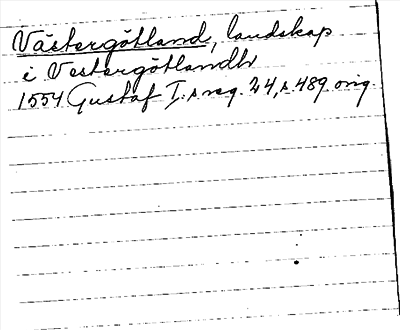 Västergötland, landskap
i Vestergötlandh
1554 Gustaf I:s reg. 24, s. 489 orig.